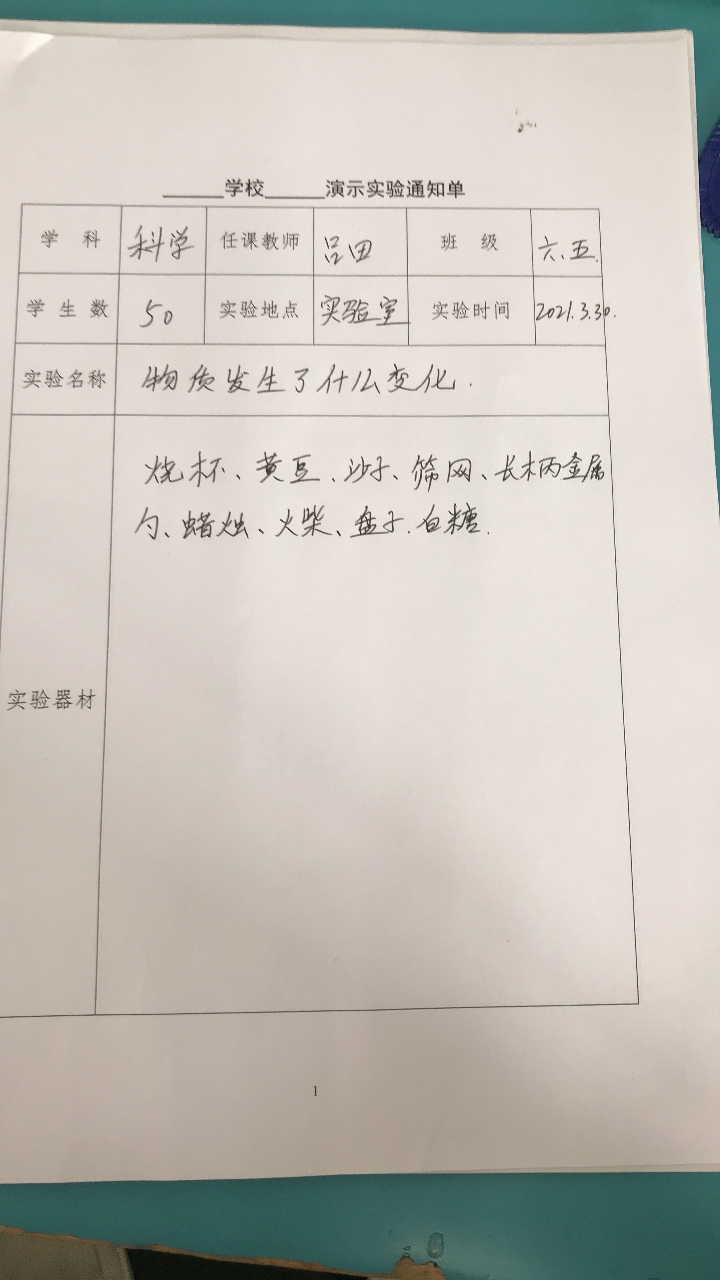 ______学校______演示实验通知单
学 科 科学 任课教师 吕田 班 级 六.五.
学 生 数 50 实验地点 实验室 实验时间 2021.3.30.
实验名称 物质发生了什么变化.
烧杯、黄豆、沙子、筛网、长柄金属
勺、蜡烛、火柴、盘子.白糖.
实验器材
1